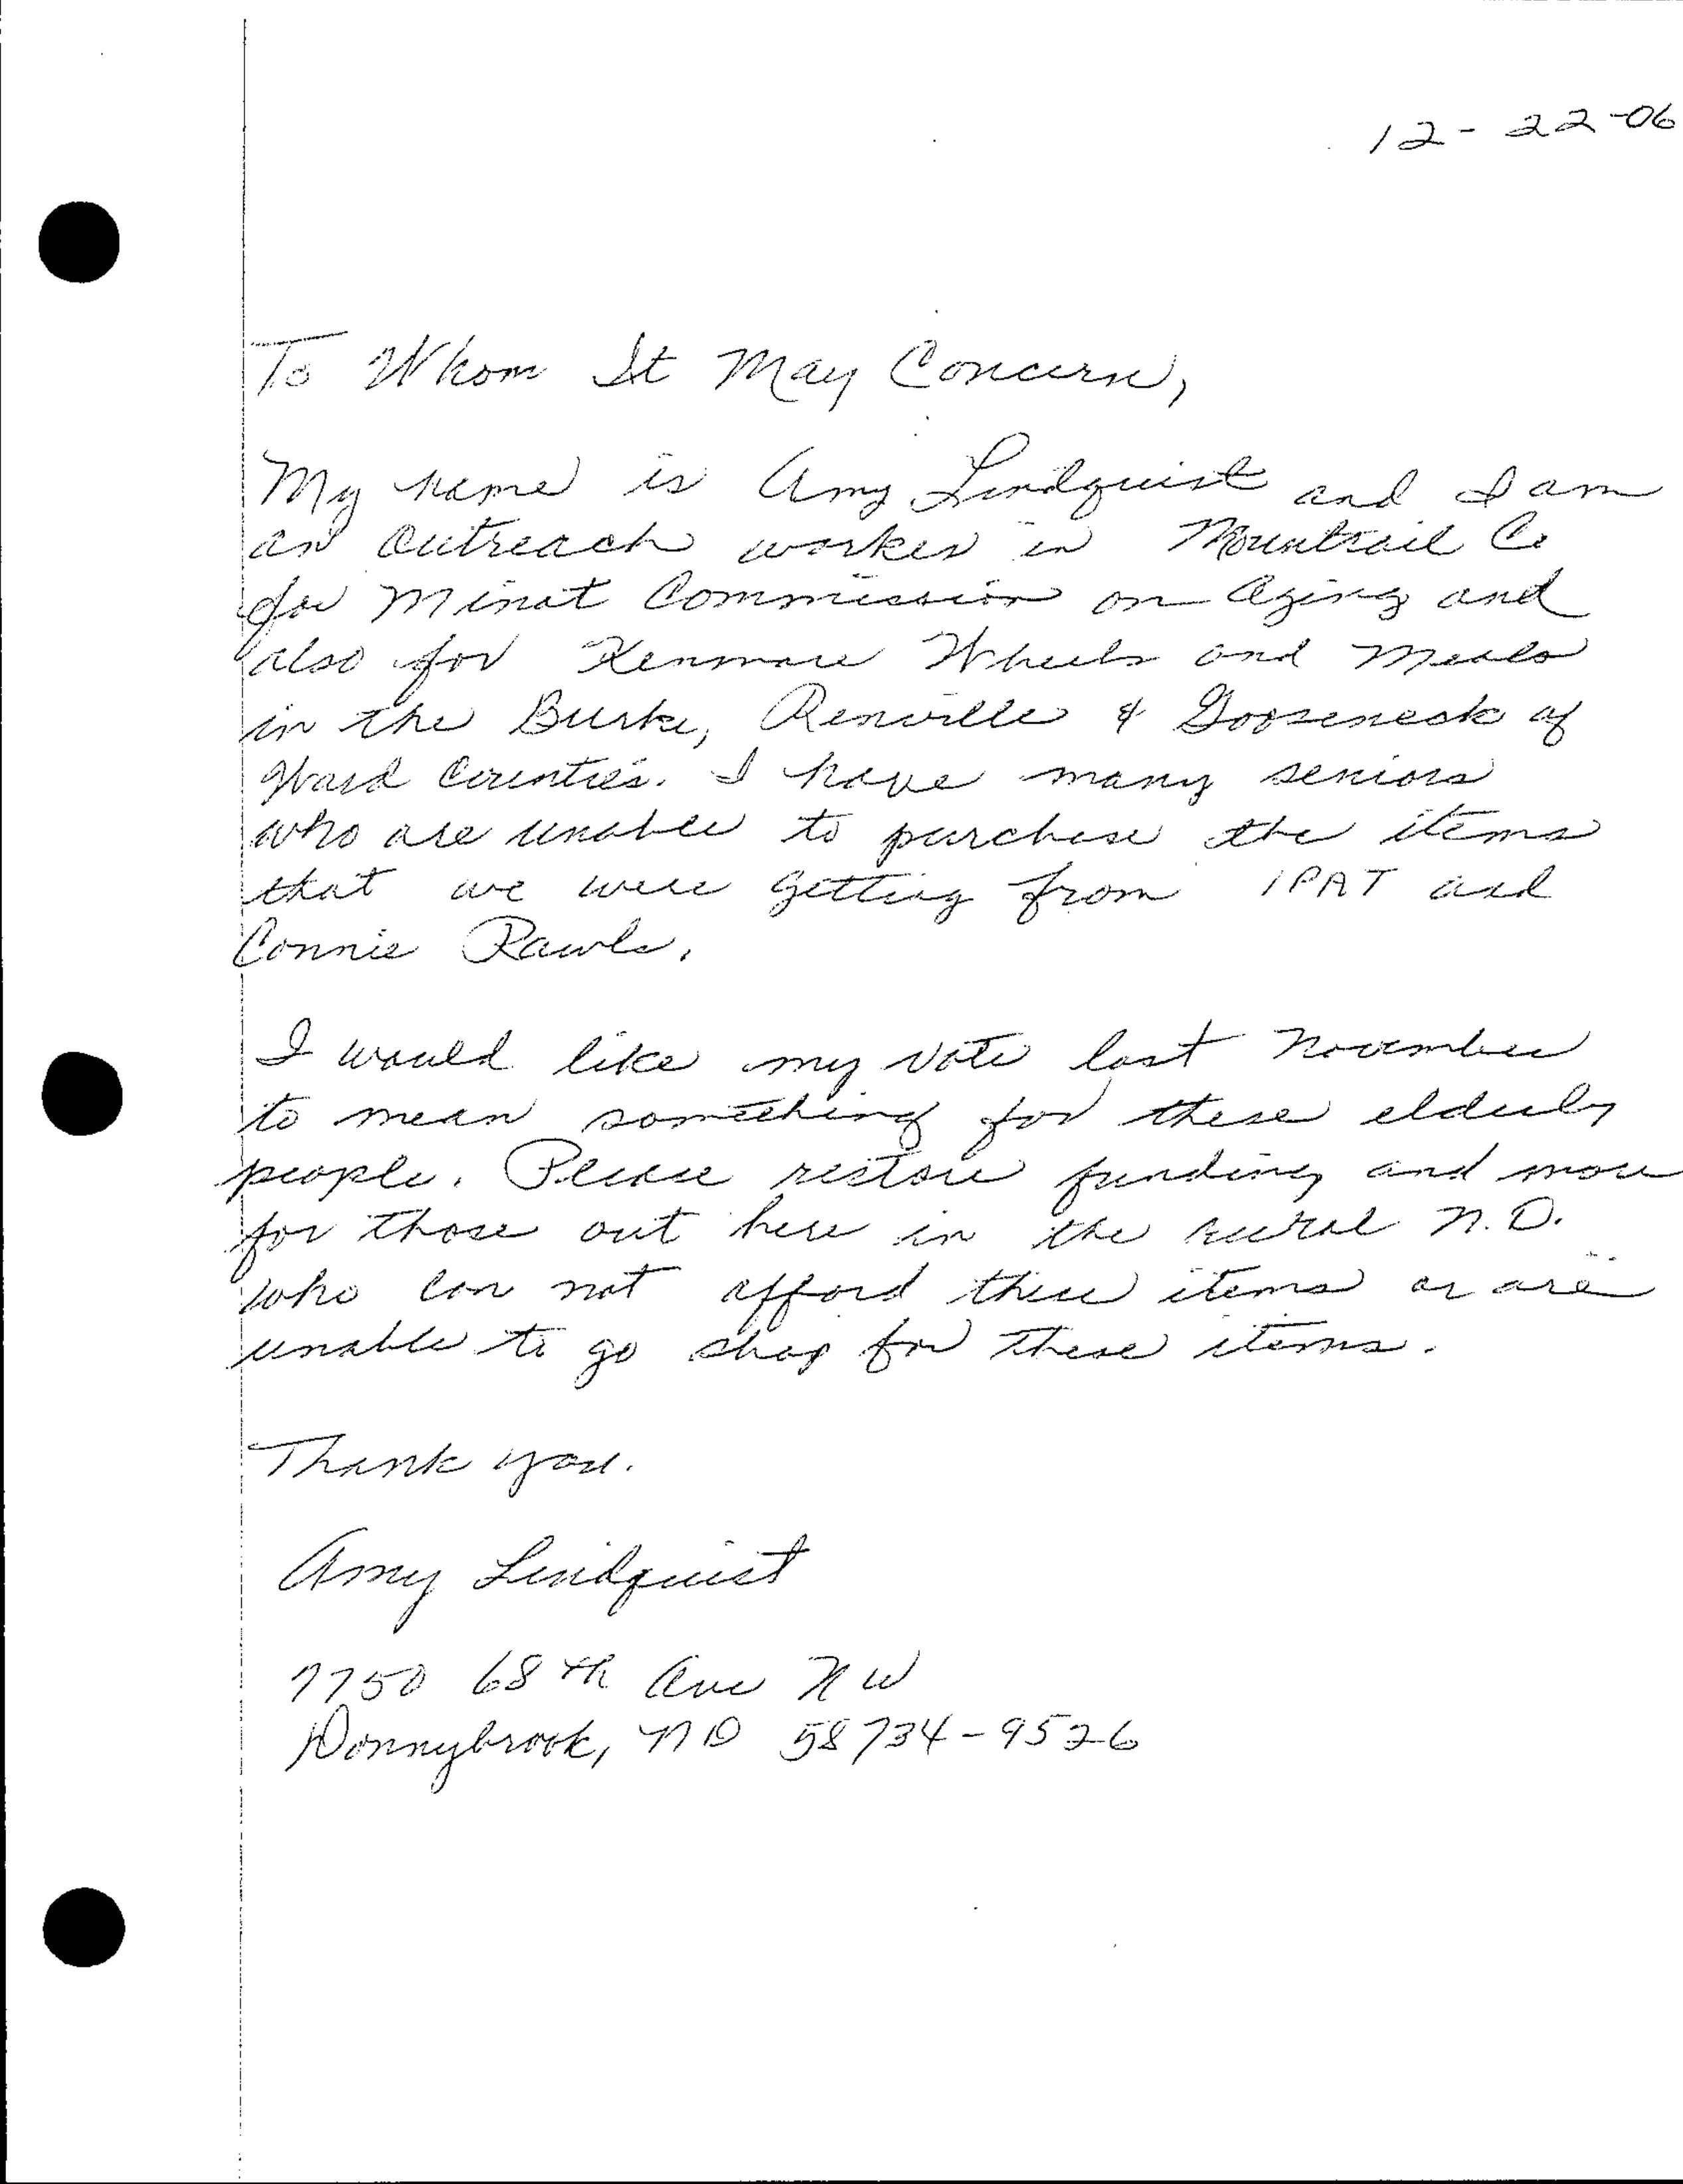 12-22-06
To Whom It May Concern,
My name is Amy Lindquist and I am
an Outreach worker in Mountrail Co
for Minot Commission on Aging and
also for Kenmare Wheels and Meals
in the Burke, Renville & Gooseneck of
Ward Counties. I have many seniors
who are unable to purchase the items
that we were getting from IPAT and
Connie Rawls.
I would like my vote last November
to mean something for these elderly
people. Please restore funding and more
for those out here in the rural N.D.
who can not afford these items or are
unable to go shop for these items.
Thank you.
Amy Lindquist
7750 68th Ave NW
Donnybrook, ND 58734-9526